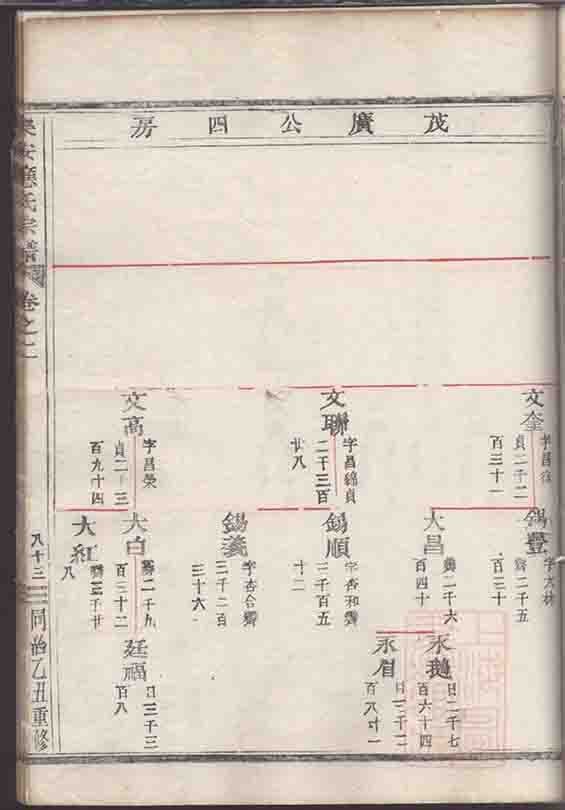 茂廣公四房
文奎
字昌
貞二千二
百三十一
文聯
字昌錦貞
二千三百
廿八
文高
字昌榮
貞二千三
百九十四
錫豐
字大林
齊二千五
百三十
大昌
齊二千六
百四十
錫順
字杏和齊
三千百五
十二
錫義
字杏合齊
三千二百
三十六
大白
齊二千九
百三十二
大紅
齊三千廿
八
永
日二千七
百六十四
永眉
日三千二
百八十一
廷福
日三千三
百八
應氏宗譜
卷之二
八十三
同治乙丑重修